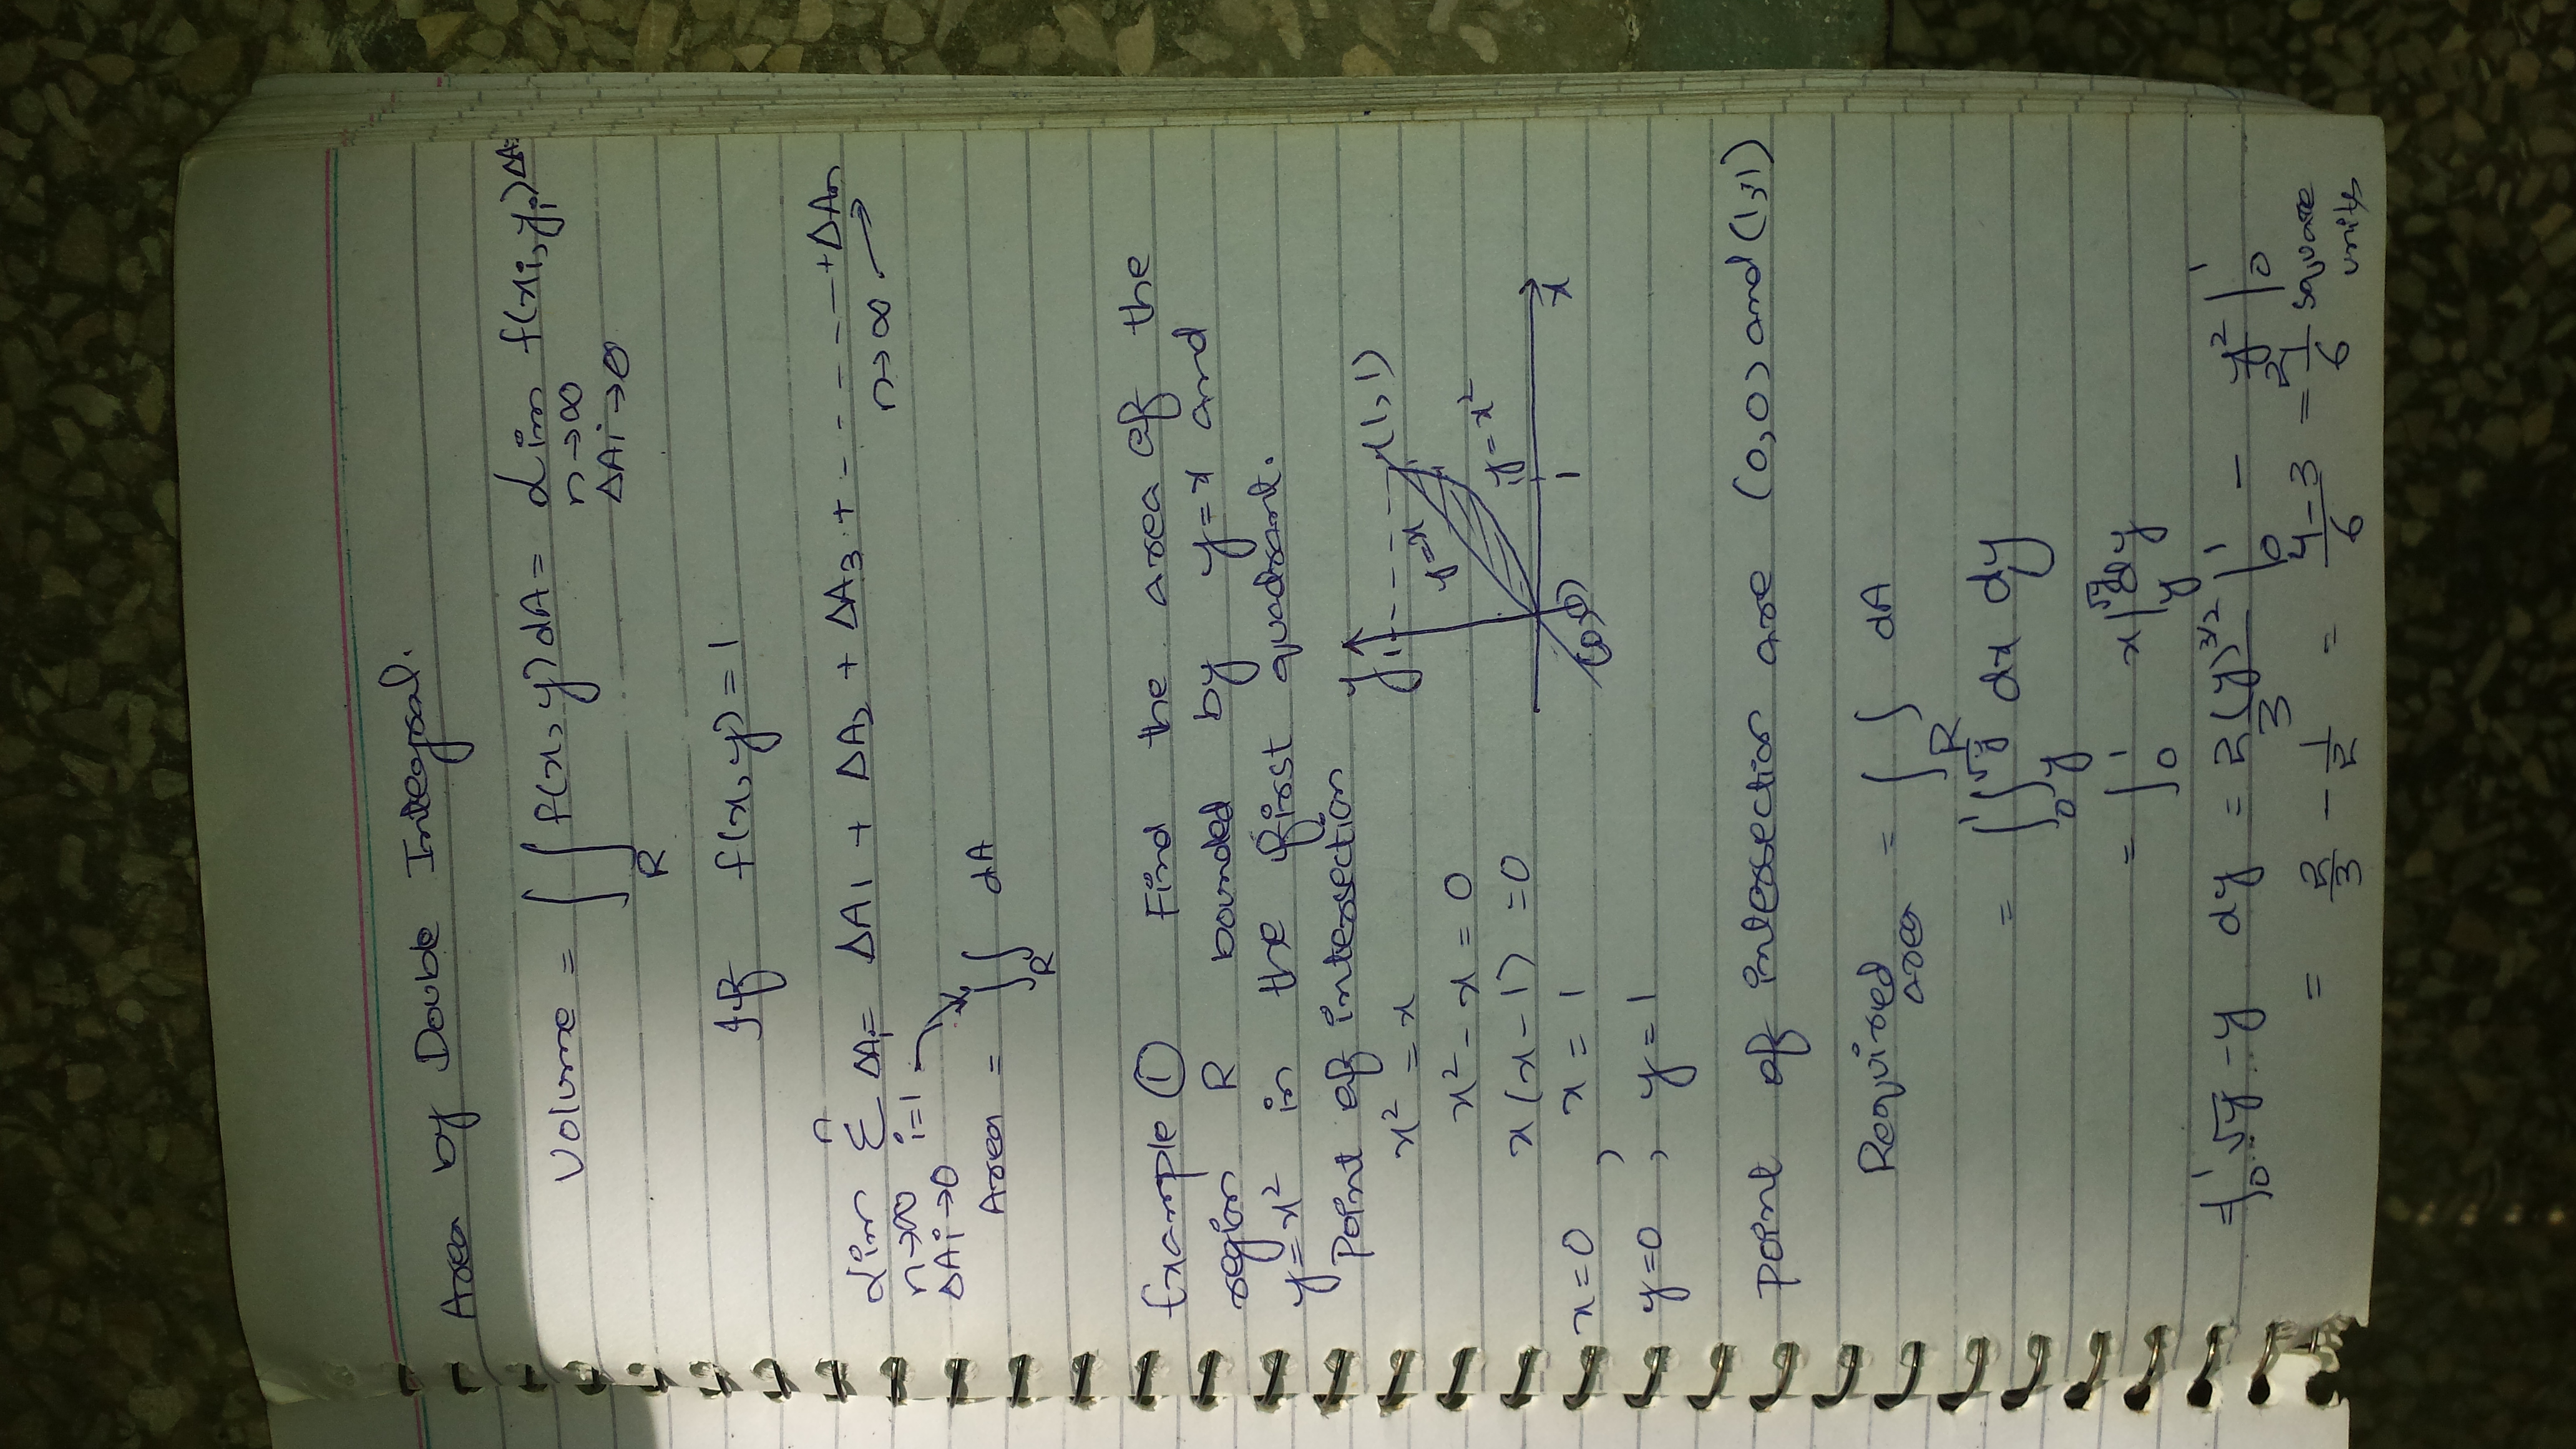 Area by Double Integral.
Volume = ∫∫ f(x, y) dA = Lim f(xi, yi) ΔAi
R n→∞
ΔAi→0
If f(x, y) = 1
n
Lim Σ ΔAi = ΔA1 + ΔA2 + ΔA3 + - - - - - - + ΔAn
n→∞ i=1 n→∞
ΔAi→0
Area = ∫∫ dA
R
Example ① Find the area of the
region R bounded by y=x and
y=x² in the first quadrant.
Point of intersection
x² = x
x² - x = 0
x(x-1) = 0
x=0 , x = 1
y=0 , y = 1
y
1 (1,1)
y=x
y=x²
(0,0) 1 x
point of intersection are (0,0) and (1,1)
Required area = ∫∫ dA
R
= ∫₀¹ ∫_y^√y dx dy
= ∫₀¹ x|_y^√y dy
= ∫₀¹ √y - y dy = 2(y)^3/2 / 3 |₀¹ - y²/2 |₀¹
= 2/3 - 1/2 = 4-3/6 = 1/6 square units